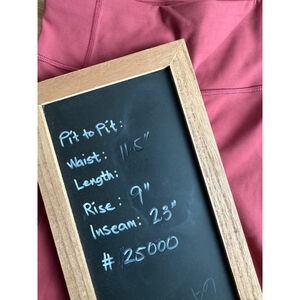 Pit to Pit:
Waist: 11.5"
Length:
Rise: 9"
Inseam: 23"
# 25000